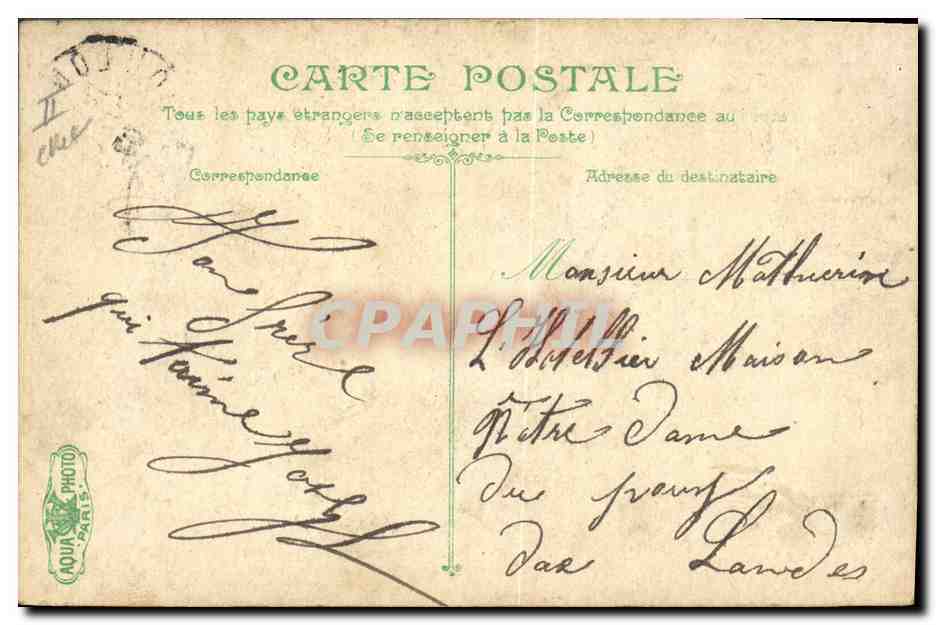 CARTE POSTALE
Tous les pays étrangers n'acceptent pas la Correspondance au
(Se renseigner à la Poste)
Correspondance
Adresse du destinataire
Ton frère
qui t'aime
Monsieur Mathurine
Maison
Notre Dame
du
dax Landes
CPAPHIL
AQUA PHOTO
PARIS
II